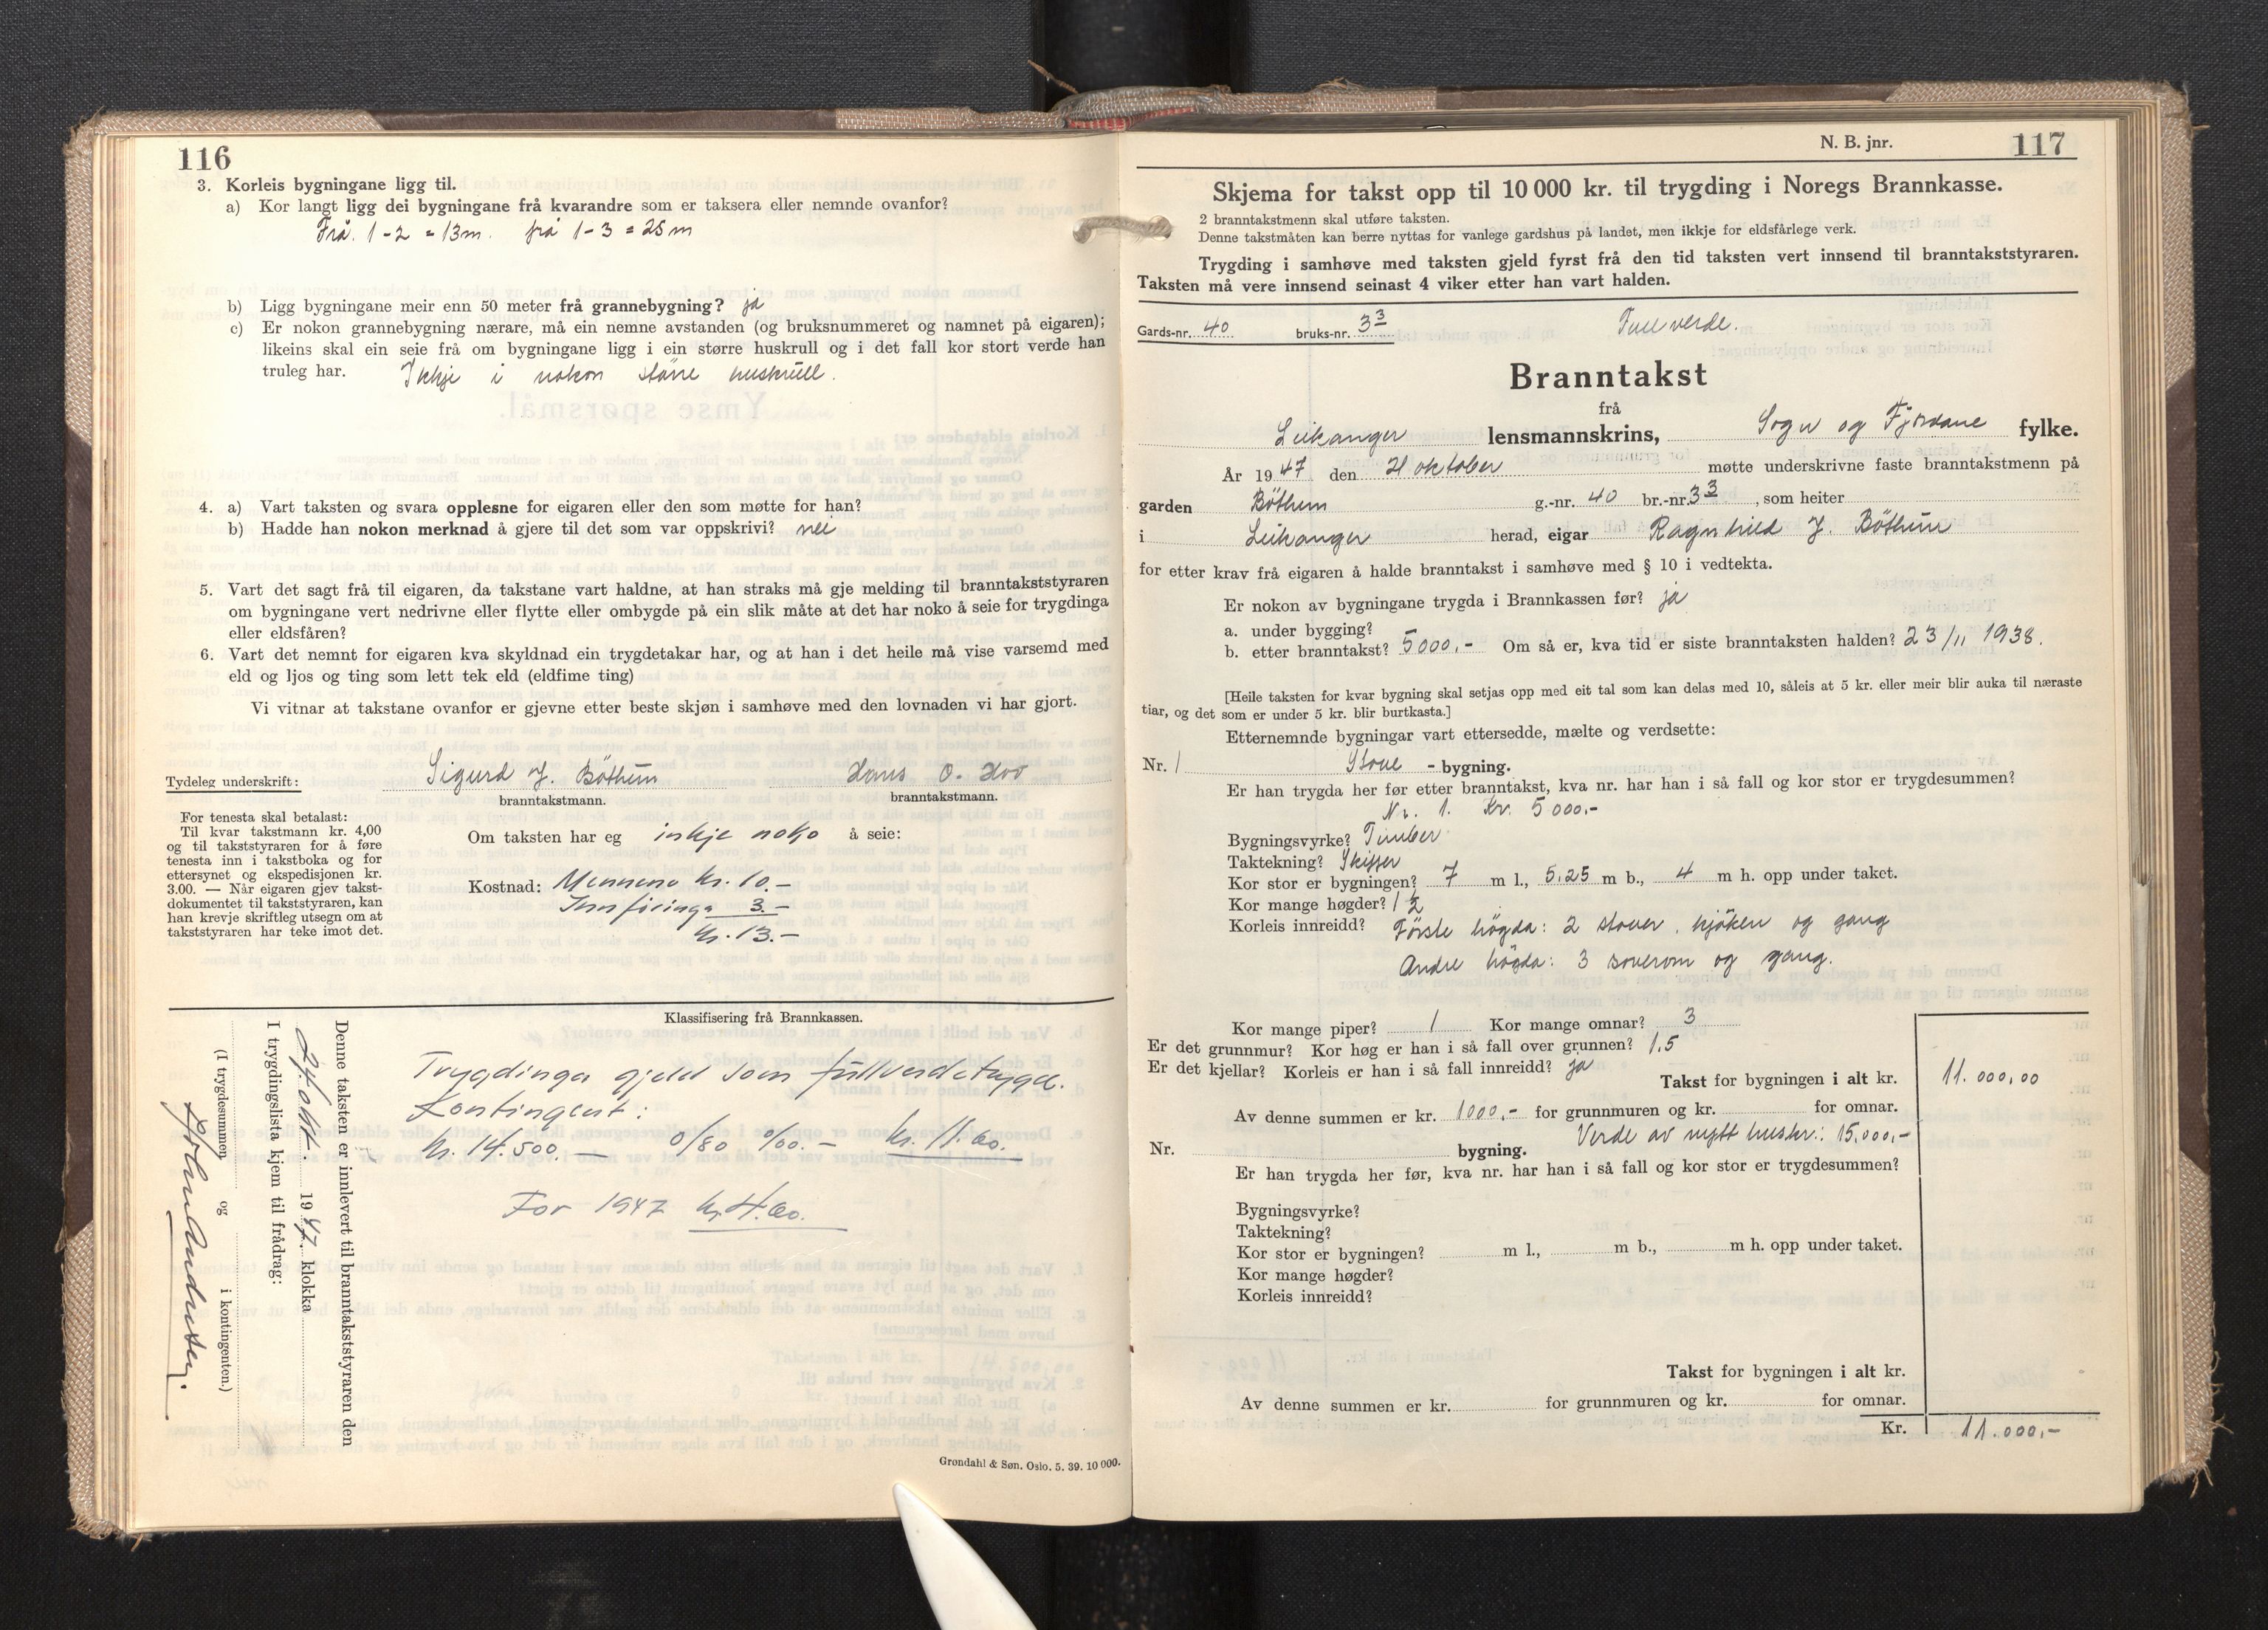 116
3. Korleis bygningane ligg til.
a) Kor langt ligg dei bygningane frå kvarandre som er taksera eller nemnde ovanfor?
Frå 1-2 = 13m. frå 1-3 = 25m
b) Ligg bygningane meir enn 50 meter frå grannebygning? ja
c) Er nokon grannebygning nærare, må ein nemne avstanden (og bruksnummeret og namnet på eigaren);
likeins skal ein seie frå om bygningane ligg i ein større huskrull og i det fall kor stort verde han
truleg har. Ikkje i nokon större huskrull.
4. a) Vart taksten og svara opplesne for eigaren eller den som møtte for han?
b) Hadde han nokon merknad å gjere til det som var oppskrivi? nei
5. Vart det sagt frå til eigaren, da takstane vart haldne, at han straks må gje melding til branntakststyraren
om bygningane vert nedrivne eller flytte eller ombygde på ein slik måte at det har noko å seie for trygdinga
eller eldsfåren?
6. Vart det nemnt for eigaren kva skyldnad ein trygdetakar har, og at han i det heile må vise varsemd med
eld og ljos og ting som lett tek eld (eldfime ting)
Vi vitnar at takstane ovanfor er gjevne etter beste skjøn i samhøve med den lovnaden vi har gjort.
Tydeleg underskrift: Sigurd J. Böthun Hans O. Hov
branntakstmann. branntakstmann.
For tenesta skal betalast:
Til kvar takstmann kr. 4,00
og til takststyraren for å føre
tenesta inn i takstboka og for
ettersynet og ekspedisjonen kr.
3.00. — Når eigaren gjev takst-
dokumentet til takststyraren, kan
han krevje skriftleg utsegn om at
takststyraren har teke imot det.
Om taksten har eg inkje noko å seie:
Kostnad: Mennene kr. 10.-
Innföringa 3.-
Kr. 13.-
Klassifisering frå Brannkassen.
Trygdinga gjeld som fullverdetrygd.
Kontingent:
Kr. 14.500.- 0/80 o/oo.- kr. 11.60.
For 1947 kr. 4.60.
Denne taksten er innlevert til branntakststyraren den
24/okt. 1947. klokka
I trygdingslista kjem til frådrag:
(I trygdesummen og i kontingenten.)
Grøndahl & Søn. Oslo. 5. 39. 10 000.
N. B. jnr. 117
Skjema for takst opp til 10 000 kr. til trygding i Noregs Brannkasse.
2 branntakstmenn skal utføre taksten.
Denne takstmåten kan berre nyttas for vanlege gardshus på landet, men ikkje for eldsfårlege verk.
Trygding i samhøve med taksten gjeld fyrst frå den tid taksten vert innsend til branntakststyraren.
Taksten må vere innsend seinast 4 viker etter han vart halden.
Gards-nr. 40 bruks-nr. 3 3 Full verde.
Branntakst
frå
Leikanger lensmannskrins, Sogn og Fjordane fylke.
År 1947 den 21 oktober møtte underskrivne faste branntakstmenn på
garden Böthun g.-nr. 40 br.-nr. 3 3, som heiter
i Leikanger herad, eigar Ragnhild J. Böthun
for etter krav frå eigaren å halde branntakst i samhøve med § 10 i vedtekta.
Er nokon av bygningane trygda i Brannkassen før? ja
a. under bygging?
b. etter branntakst? 5000,- Om så er, kva tid er siste branntaksten halden? 23/11 1938.
[Heile taksten for kvar bygning skal setjas opp med eit tal som kan delas med 10, såleis at 5 kr. eller meir blir auka til næraste
tiar, og det som er under 5 kr. blir burtkasta.]
Etternemnde bygningar vart ettersedde, mælte og verdsette:
Nr. 1 Stove - bygning.
Er han trygda her før etter branntakst, kva nr. har han i så fall og kor stor er trygdesummen?
Nr. 1. Kr. 5000.-
Bygningsvyrke? Timber
Taktekning? Skiffer
Kor stor er bygningen? 7 m l., 5,25 m b., 4 m h. opp under taket.
Kor mange høgder? 1 ½
Korleis innreidd? Förste högda: 2 stover, kjöken og gang
Andre högda: 3 soverom og gang.
Kor mange piper? 1 Kor mange omnar? 3
Er det grunnmur? Kor høg er han i så fall over grunnen? 1,5
Er det kjellar? Korleis er han i så fall innreidd? ja
Takst for bygningen i alt kr. 11.000,00
Av denne summen er kr. 1000,- for grunnmuren og kr. for omnar.
Verde av nytt huskr.: 15.000,-
Nr. bygning.
Er han trygda her før, kva nr. har han i så fall og kor stor er trygdesummen?
Bygningsvyrke?
Taktekning?
Kor stor er bygningen? m l., m b., m h. opp under taket.
Kor mange høgder?
Korleis innreidd?
Takst for bygningen i alt kr.
Av denne summen er kr. for grunnmuren og kr. for omnar.
Kr. 11.000,-